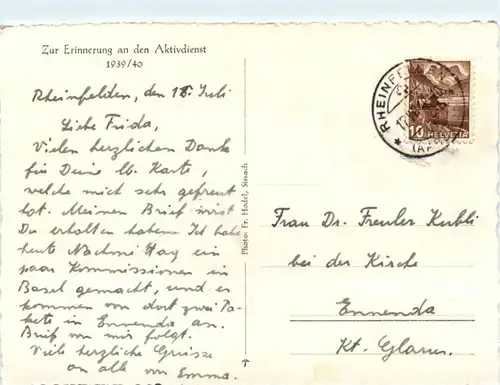 Zur Erinnerung an den Aktivdienst
1939/40
Rheinfelden, den 18. Juli
Liebe Frida,
Vielen herzlichen Dank
für Deine lb. Karte,
welche mich sehr gefreut
hat. Meinen Brief wirst
Du erhalten haben. Ich habe
heute Nachmittag ein
paar Kommissionen in
Basel gemacht, und es
kommen von dort zwei Pa-
kete in Ennenda an.
Brief von mir folgt.
Viele herzliche Grüsse
an alle von Emma.
Photo: Fr. Hodel, Sissach
RHEINFELDEN
10 HELVETIA
Frau Dr. Freuler Kubli
bei der Kirche
Ennenda
Kt. Glarus.